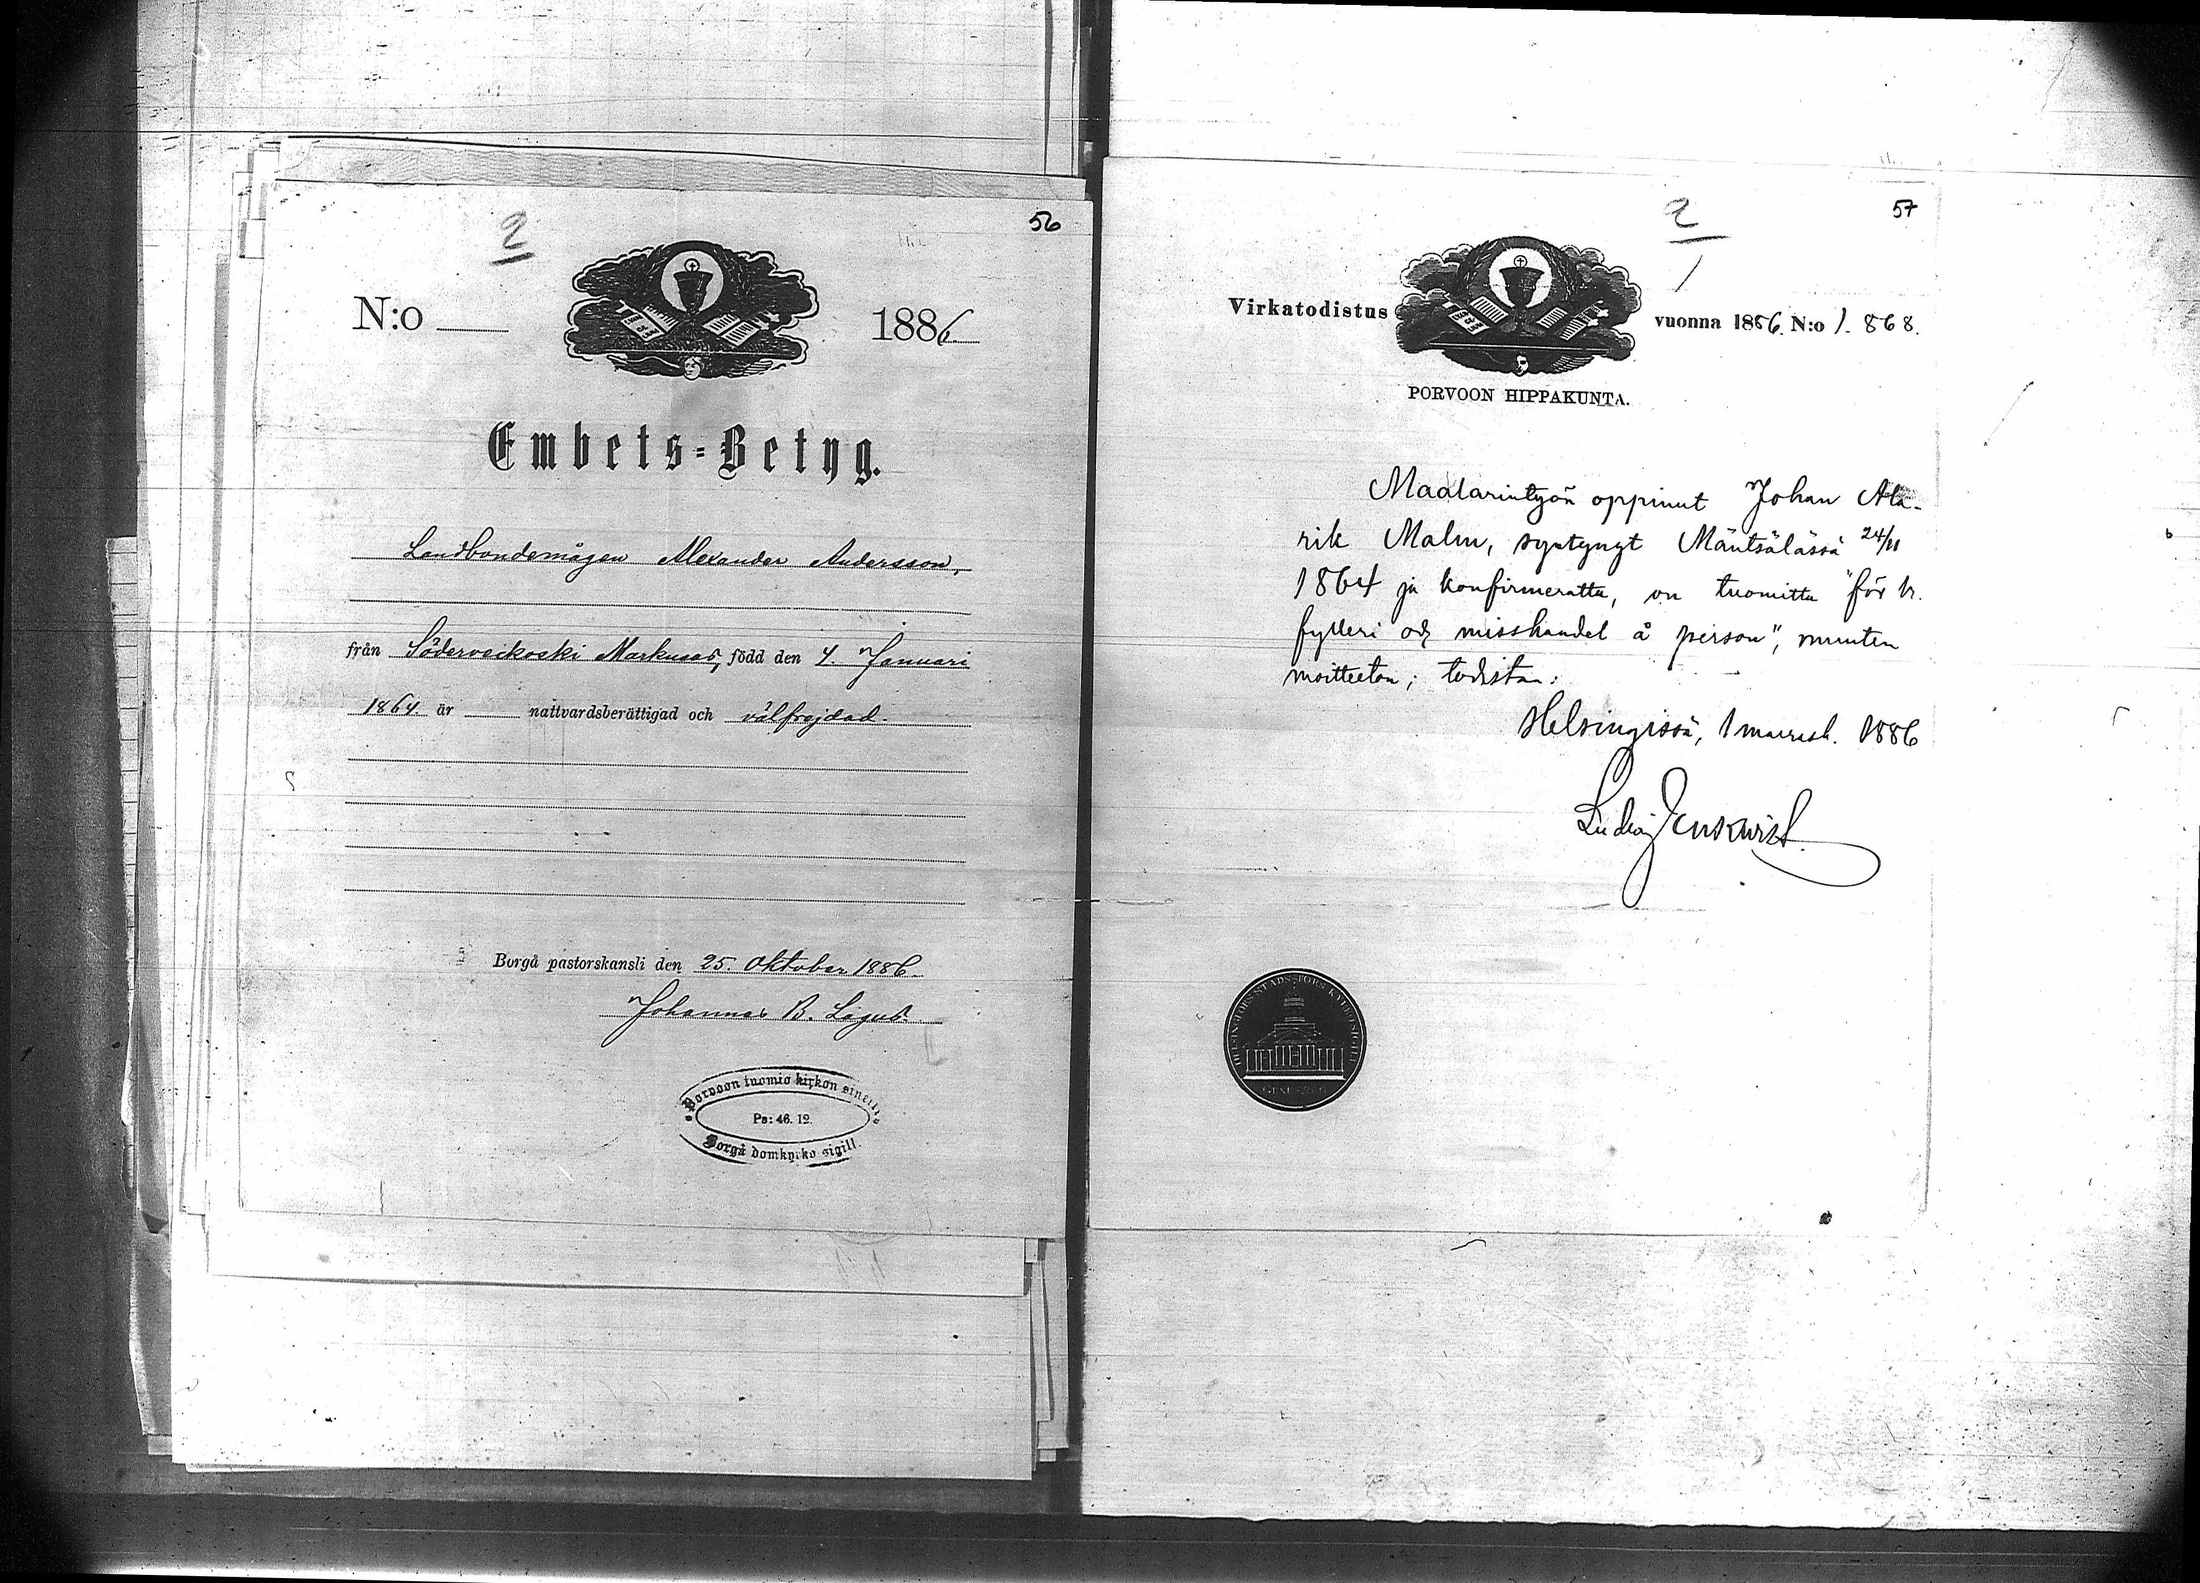 2
56
N:o
1886
Embets-Betyg.
Landbondemågen Alexander Andersson,
från Söderveckoski Markusas, född den 4. Januari
1864 är nattvardsberättigad och välfrejdad.
Borgå pastorskansli den 25. Oktober 1886.
Johannes B. Lagus.
Porvoon tuomio kirkon sinetti
Ps: 46. 12.
Borgå domkyrko sigill
2
57
Virkatodistus
vuonna 1886. N:o 1.868.
PORVOON HIPPAKUNTA.
Maalarintyön oppinut Johan Ala-
rik Malm, syntynyt Mäntsälässä 24/11
1864 ja konfirmerattu, on tuomittu "för
fylleri och misshandel å person", muuten
moitteeton; todistan:
Helsingissä, 1 marrask. 1886
HELSINGFORS STADS FÖRS. KYRKOSIGILL